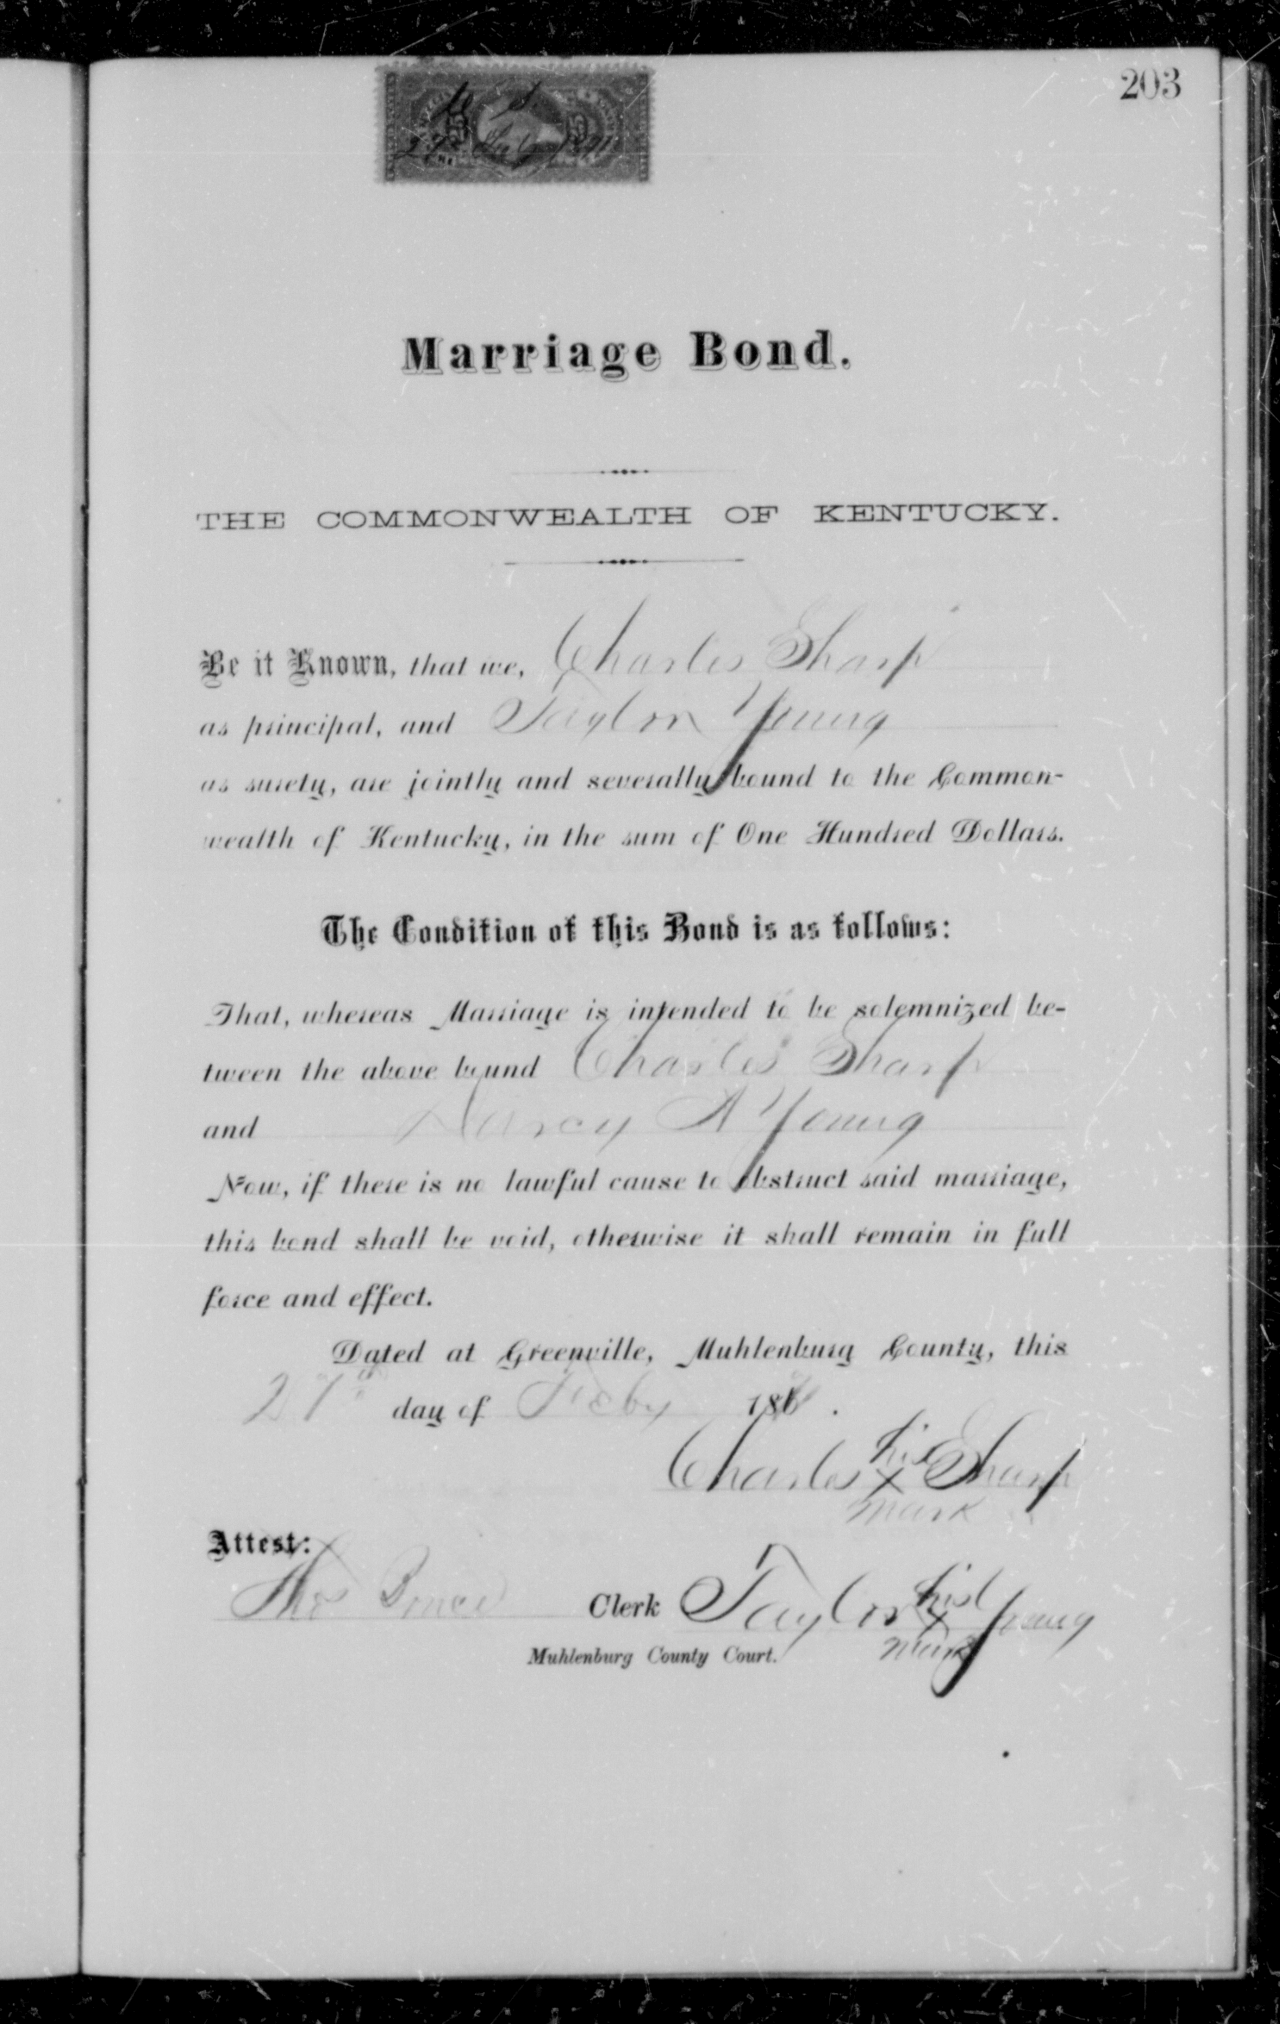 203
27th Feby 1871
Marriage Bond.
THE COMMONWEALTH OF KENTUCKY.
Be it Known, that we, Charles Sharp
as principal, and Taylor Young
as surety, are jointly and severally bound to the Common-
wealth of Kentucky, in the sum of One Hundred Dollars.
The Condition of this Bond is as follows:
That, whereas Marriage is intended to be solemnized be-
tween the above bound Charles Sharp
and Nancy A Young
Now, if there is no lawful cause to obstruct said marriage,
this bond shall be void, otherwise it shall remain in full
force and effect.
Dated at Greenville, Muhlenburg County, this
27th day of Feby 187 .
Charles his x mark Sharp
Attest:
Thos Bruce Clerk Taylor his x mark Young
Muhlenburg County Court.